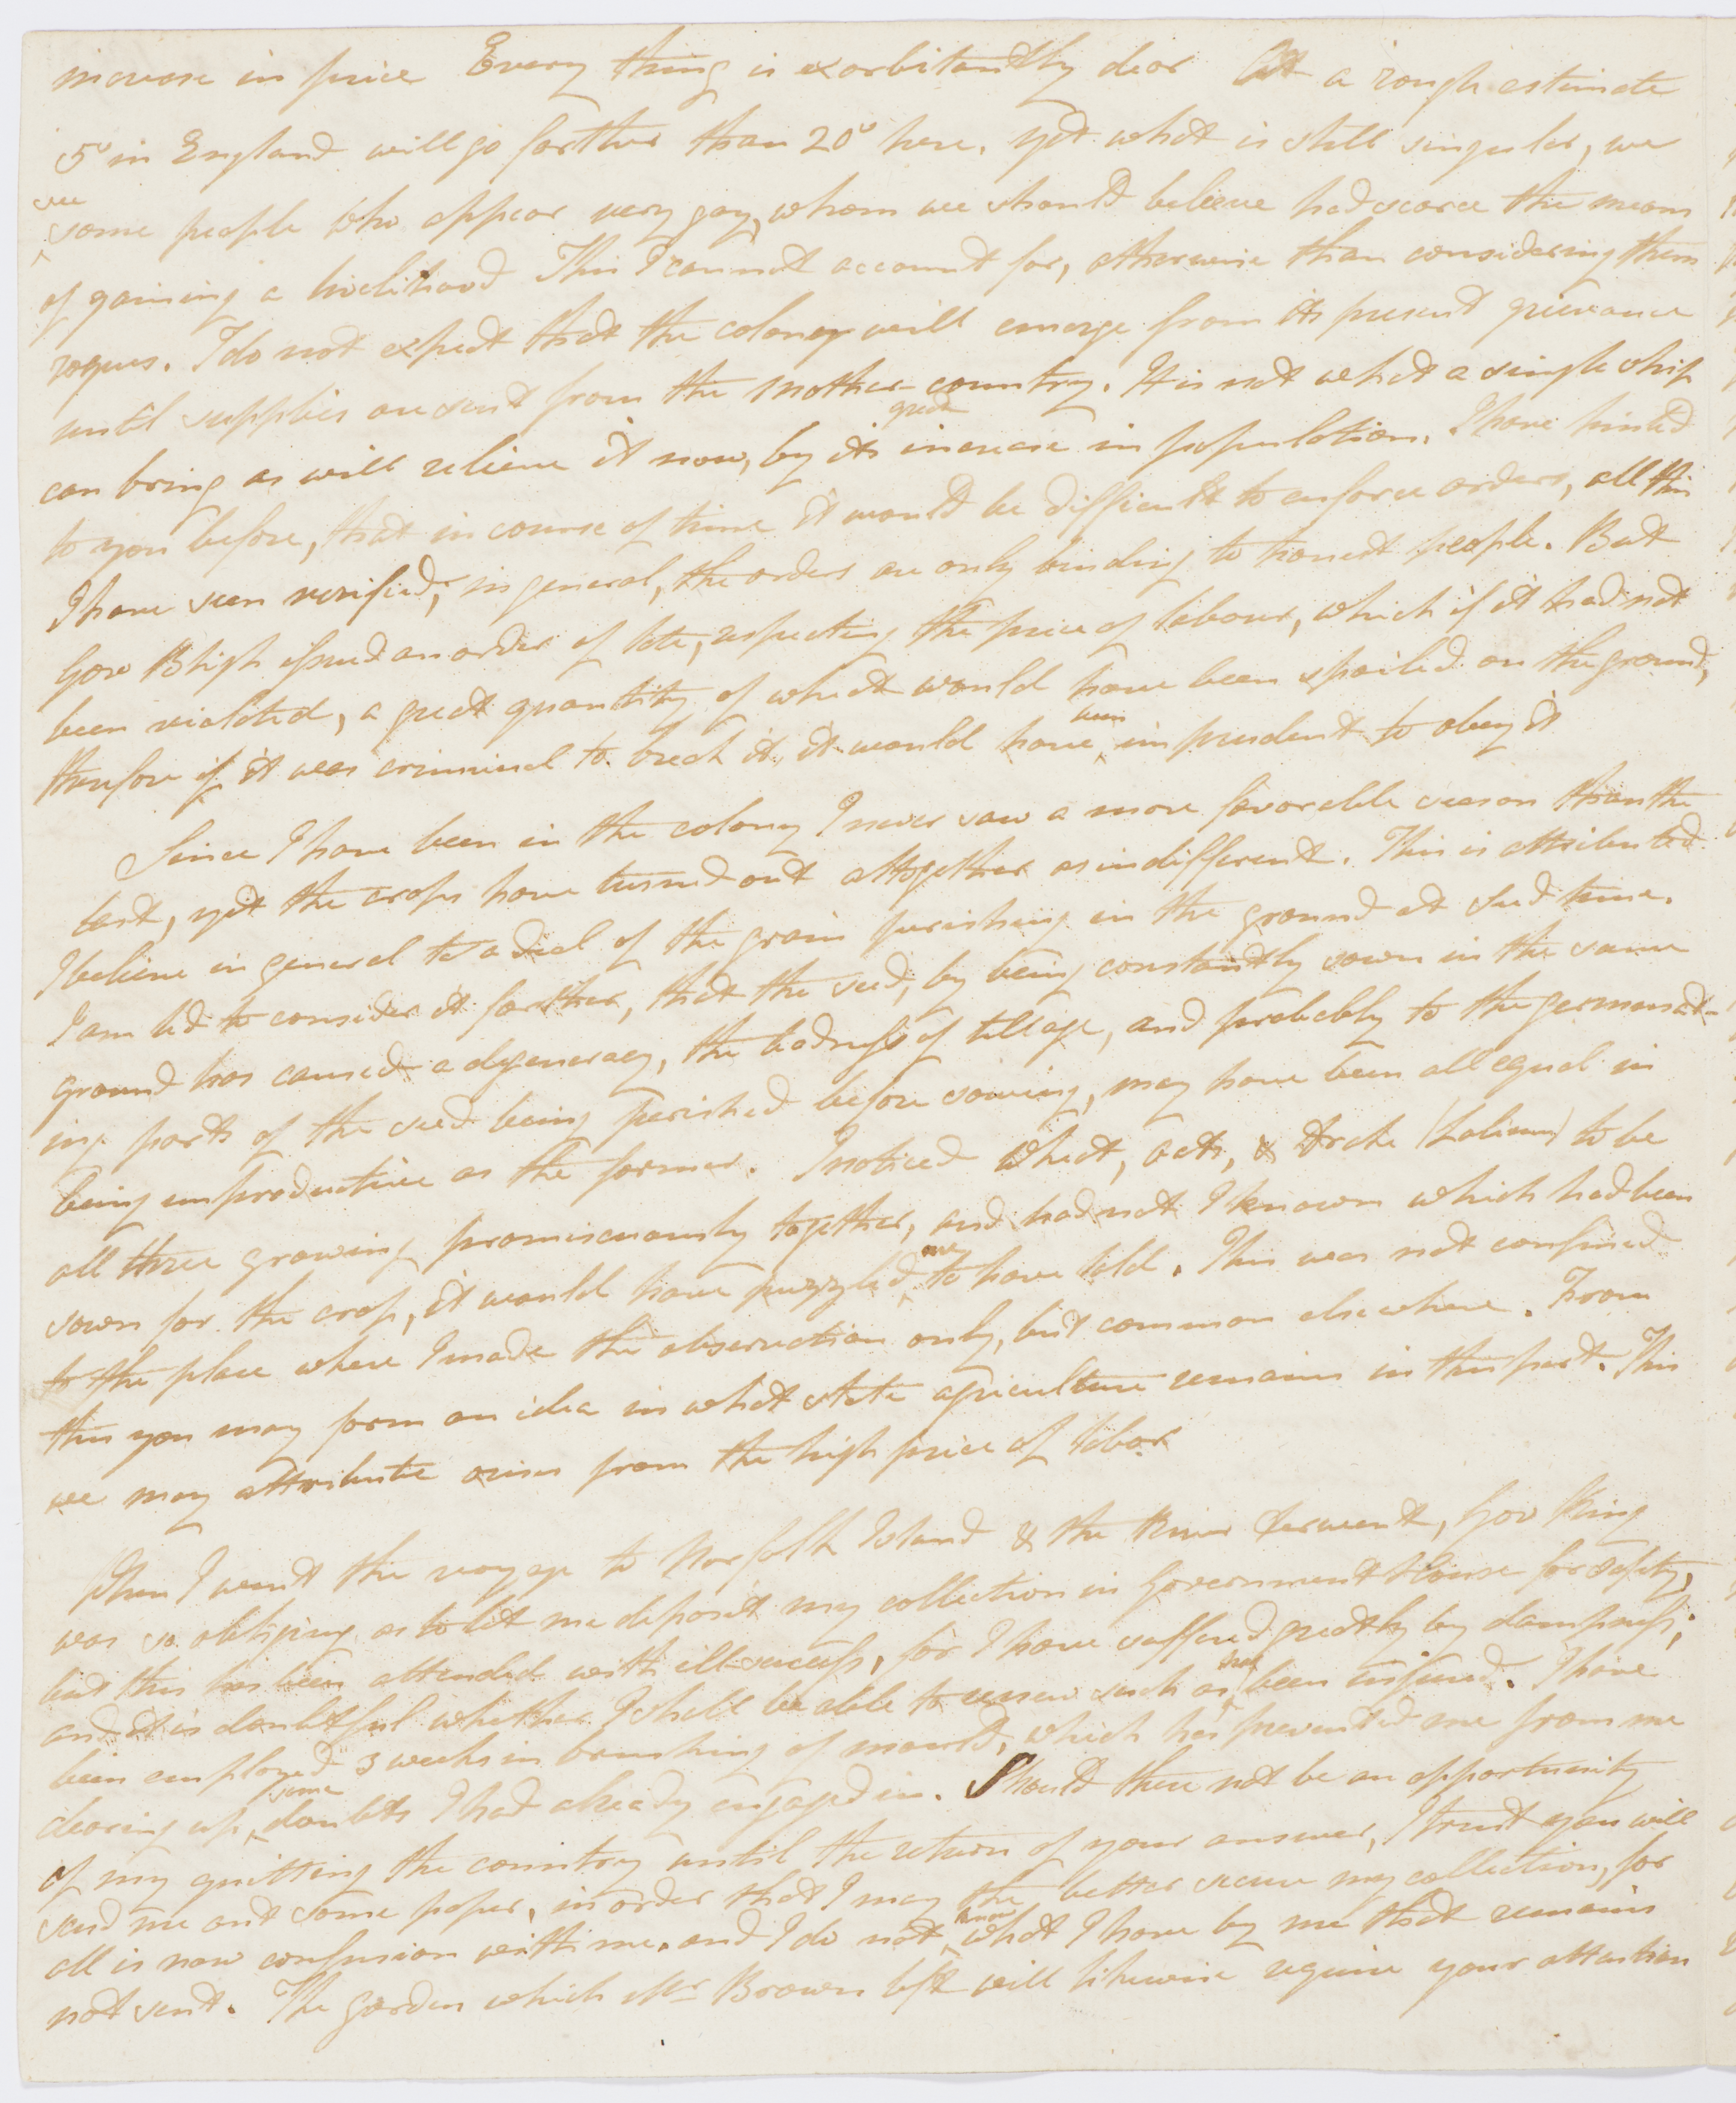 increase in price Every thing is exorbitantly dear At a rough estimate
5s in England will go farther than 20s here, yet what is still singular, we
see
some people who appear very gay, whom we should believe had scarce the means
of gaining a livelihood This I cannot account for, otherwise than considering them
rogues. I do not expect that the colony will emerge from its present grievance
until supplies are sent from the Mother country. It is not what a single ship
great
can bring as will relieve it now, by its increase in population. I have hinted
to you before, that in course of time it would be difficult to enforce orders, all this
I have seen verified; in general, the orders are only binding to honest people. But
Gov Bligh issued an order of late, respecting the price of labour, which if it had not
been violated, a great quantity of wheat would have been spoiled on the ground,
been
therefore if it was criminal to break it, it would have imprudent to obey it
Since I have been in the colony I never saw a more favorable season than the
last, yet the crops have turned out altogether as indifferent. This is attributed
I believe in general to a deal of the grain perishing in the ground at seed time.
I am led to consider it farther, that the seed, by being constantly sown in the same
ground has caused a degeneracy, the badness of tillage, and probably to the germinat-
ing parts of the seed being perished before sowing, may have been all equal in
being unproductive as the former. I noticed Wheat, oats, & drake (Lolium) to be
all three growing promiscuously together, and had not I known which had been
me
sown for the crop, it would have puzzled to have told. This was not confined
to the place where I made the observation only, but common elsewhere. From
this you may form an idea in what state agriculture remains in this part. This
we may attribute arises from the high price of labor
When I went the voyage to Norfolk Island & the River Derwent, Gov King
was so obliging as to let me deposit my collection in Government House for safety,
but this has been attended with ill success, for I have suffered greatly by dampness;
has
and it is doubtful whether I shall be able to renew such as been injured. I have
been employed 3 weeks in brushing of mould, which has prevented me from me
some
clearing up doubts I had already engaged in. Should there not be an opportunity
of my quitting the country until the return of your answer, I trust you will
send me out some paper, in order that I may the better secure my collection, for
know
all is now confusion with me, and I do not what I have by me that remains
not sent. The garden which Mr Brown left will likewise require your attention